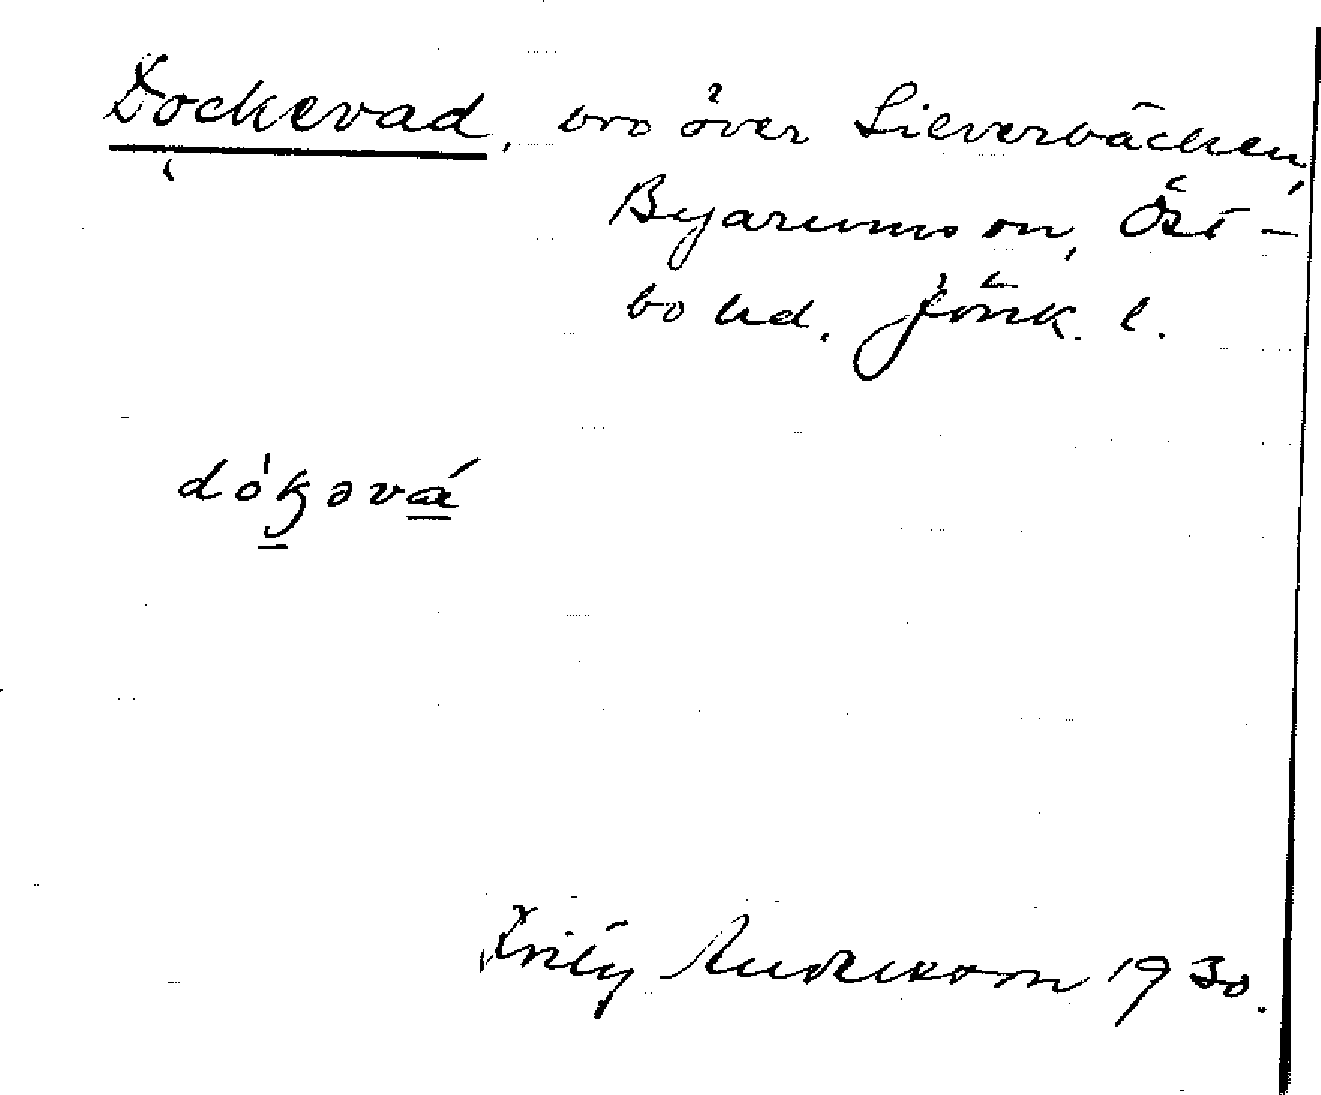 Dockevad, bro över Silverbäcken,
Byarums sn, Öst-
bo hd. Jönk. l.
dók̠əvá̠
Fritz Andersson 1930.